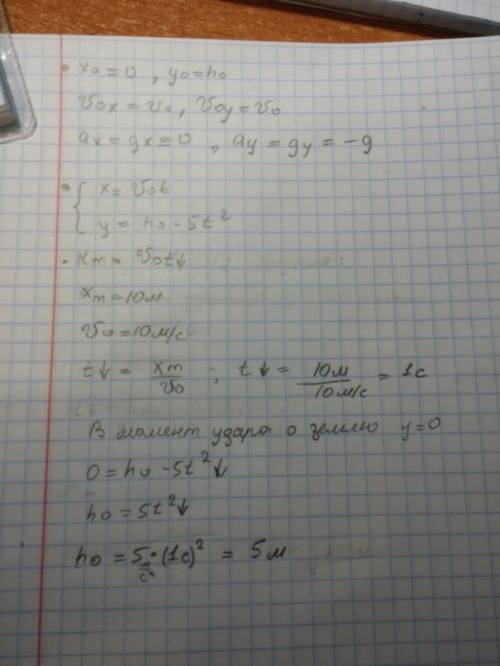 • x₀ = 0 , y₀ = h₀
v₀x = v₀ , v₀y = v₀
ax = gx = 0 , ay = gy = -g
• { x = v₀t
y = h₀ - 5t²
• xm = v₀t↓
xm = 10м
v₀ = 10м/с
t↓ = xm/v₀ ; t↓ = 10м/10м/с = 1с
В момент удара о землю y=0
0 = h₀ - 5t²↓
h₀ = 5t²↓
h₀ = 5 м/с² · (1с)² = 5м